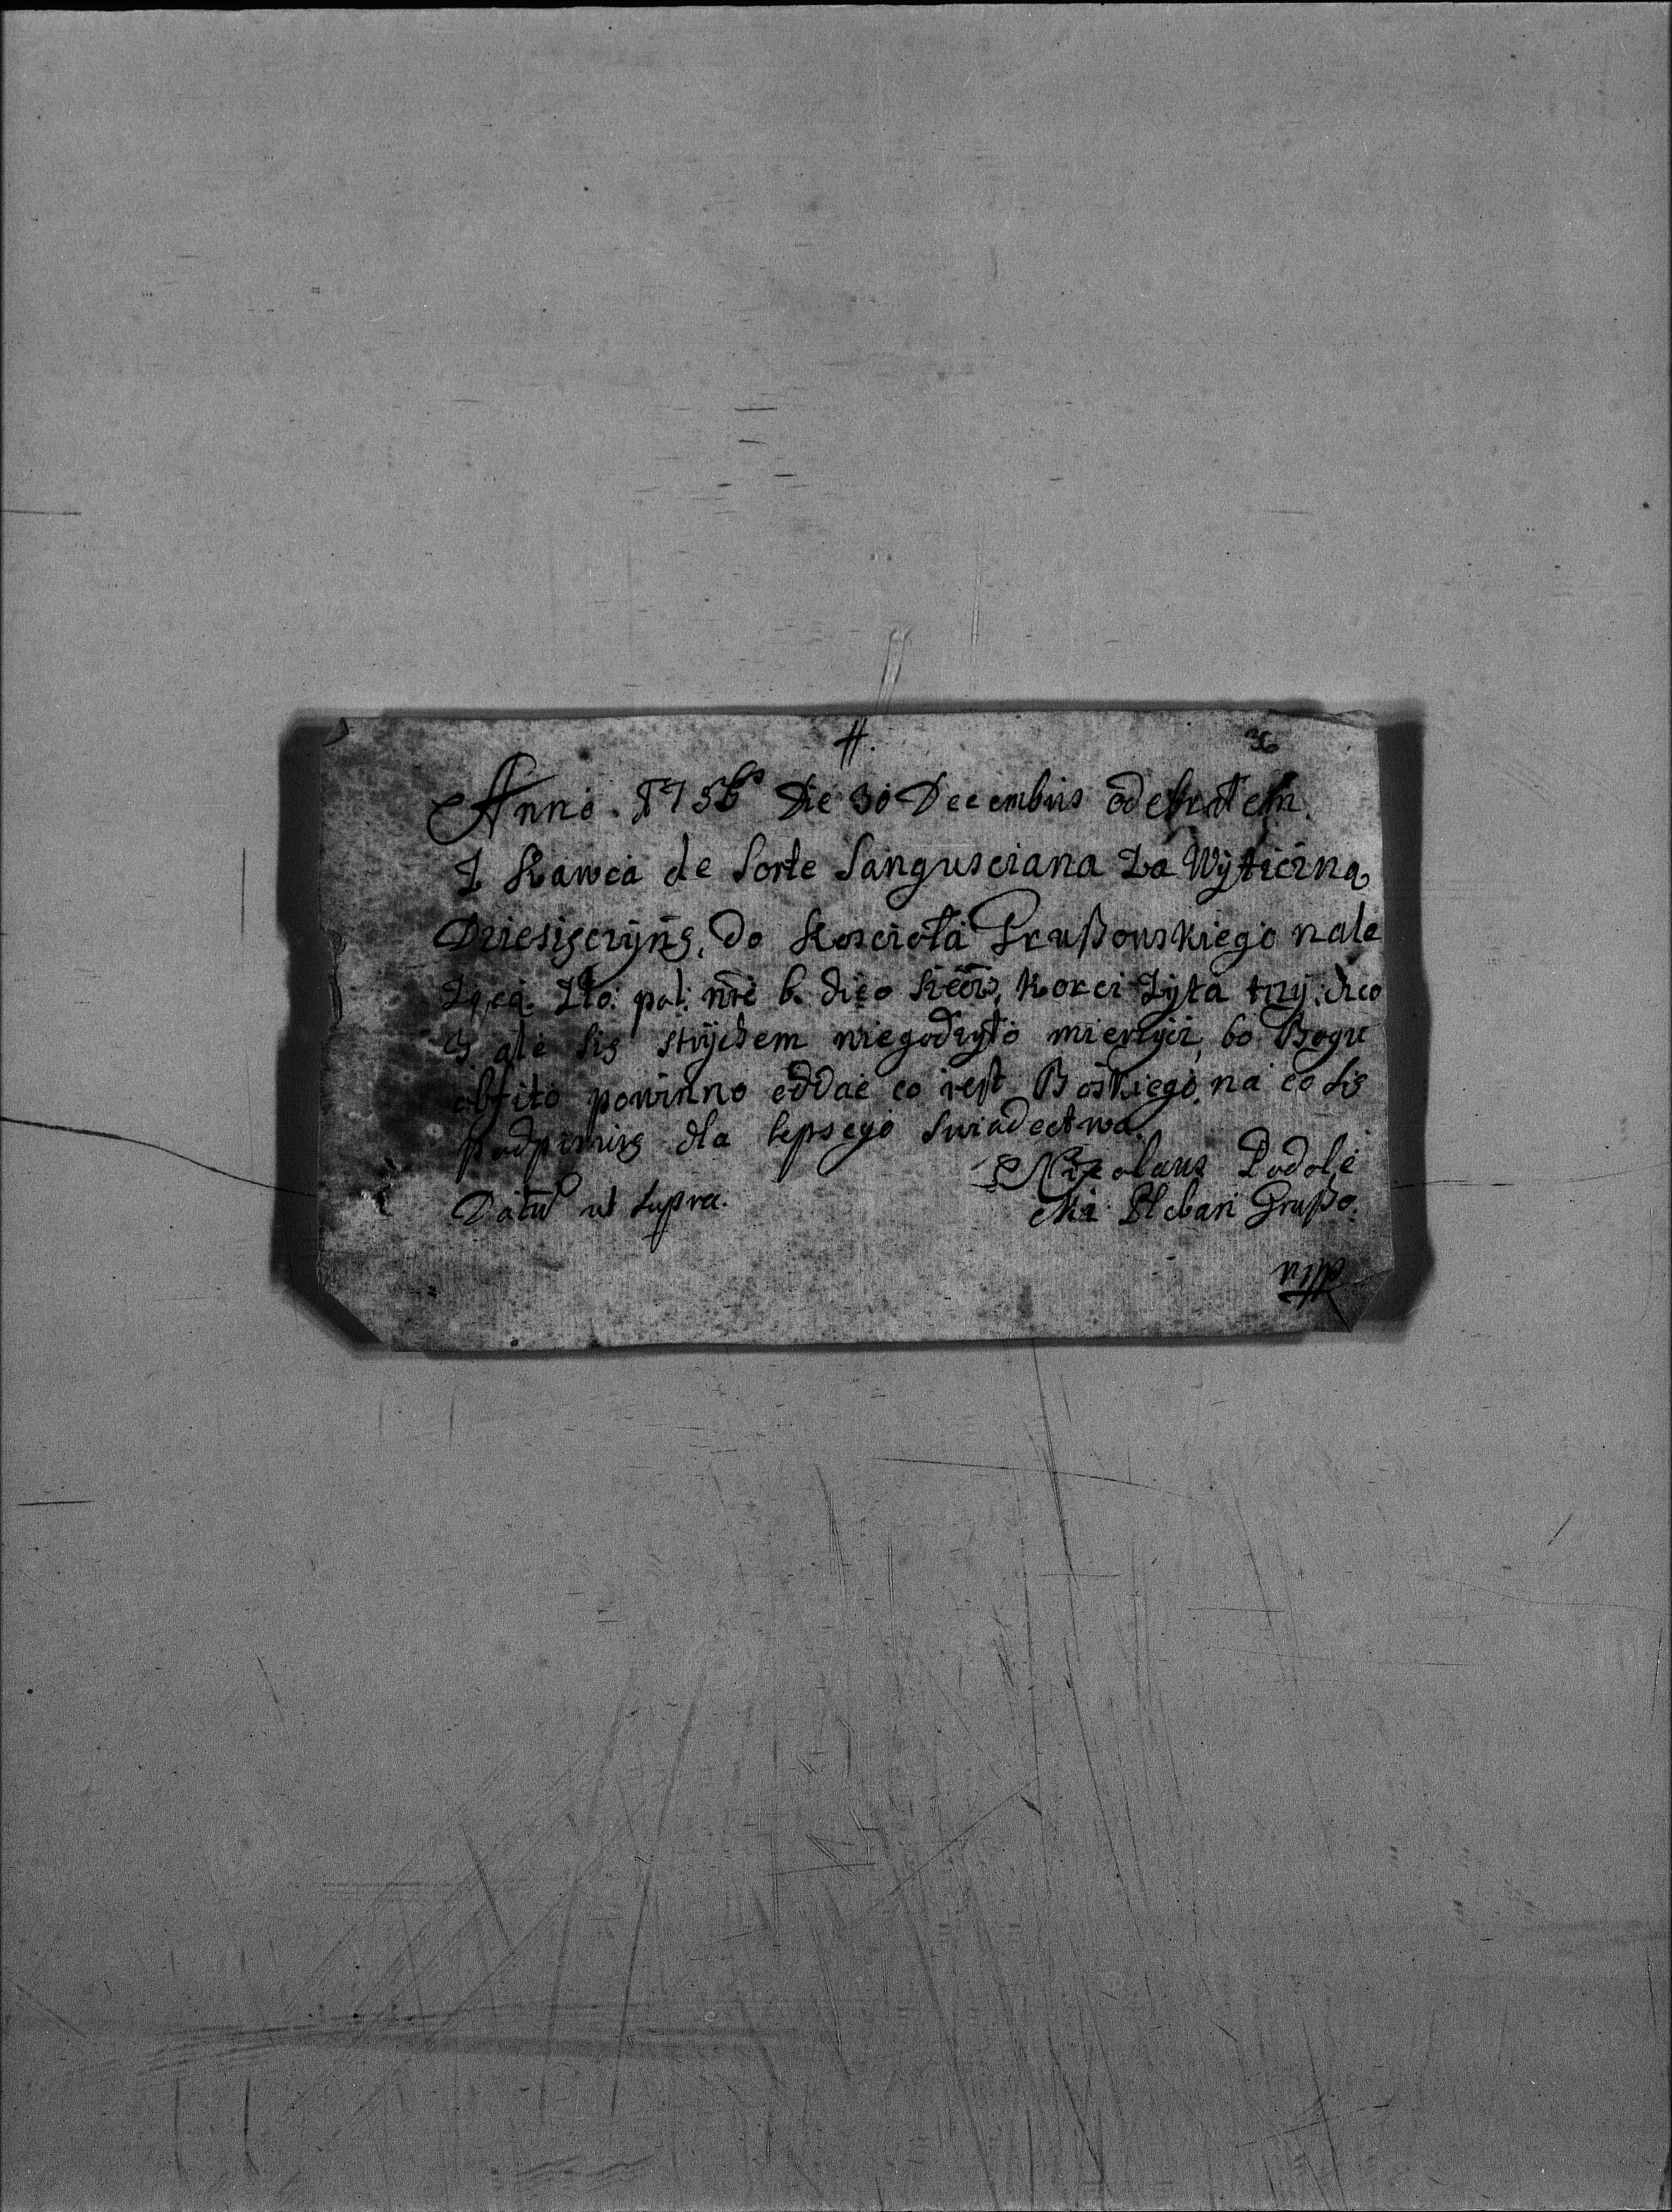 #.
Anno. 1756 Die 30 Decembris odebrałem.
Z Kawca de Sorte Sangusciana Za Wytÿczną
Dziesięcÿnę, do Koscioła Grußowskiego nale
Zącą. Zło: pol: nr̃i 6. dico Korci Zÿta trzÿ: dico
3 ale się strÿchem niegodzyło mierzÿci, bo Bogu
obfito powinno oddac co iest Boskiego, na co się
podpisuię dla lepsego Swiadectwa.
Datũ ut Supra.
Nicolaus Podole
cki Pleban Grußo.
mpp